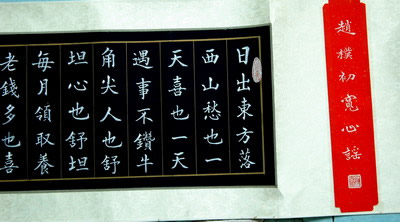 趙樸初寬心謠
日出東方落
西山愁也一
天喜也一天
遇事不鑽牛
角尖人也舒
坦心也舒坦
每月領取養
老錢多也喜